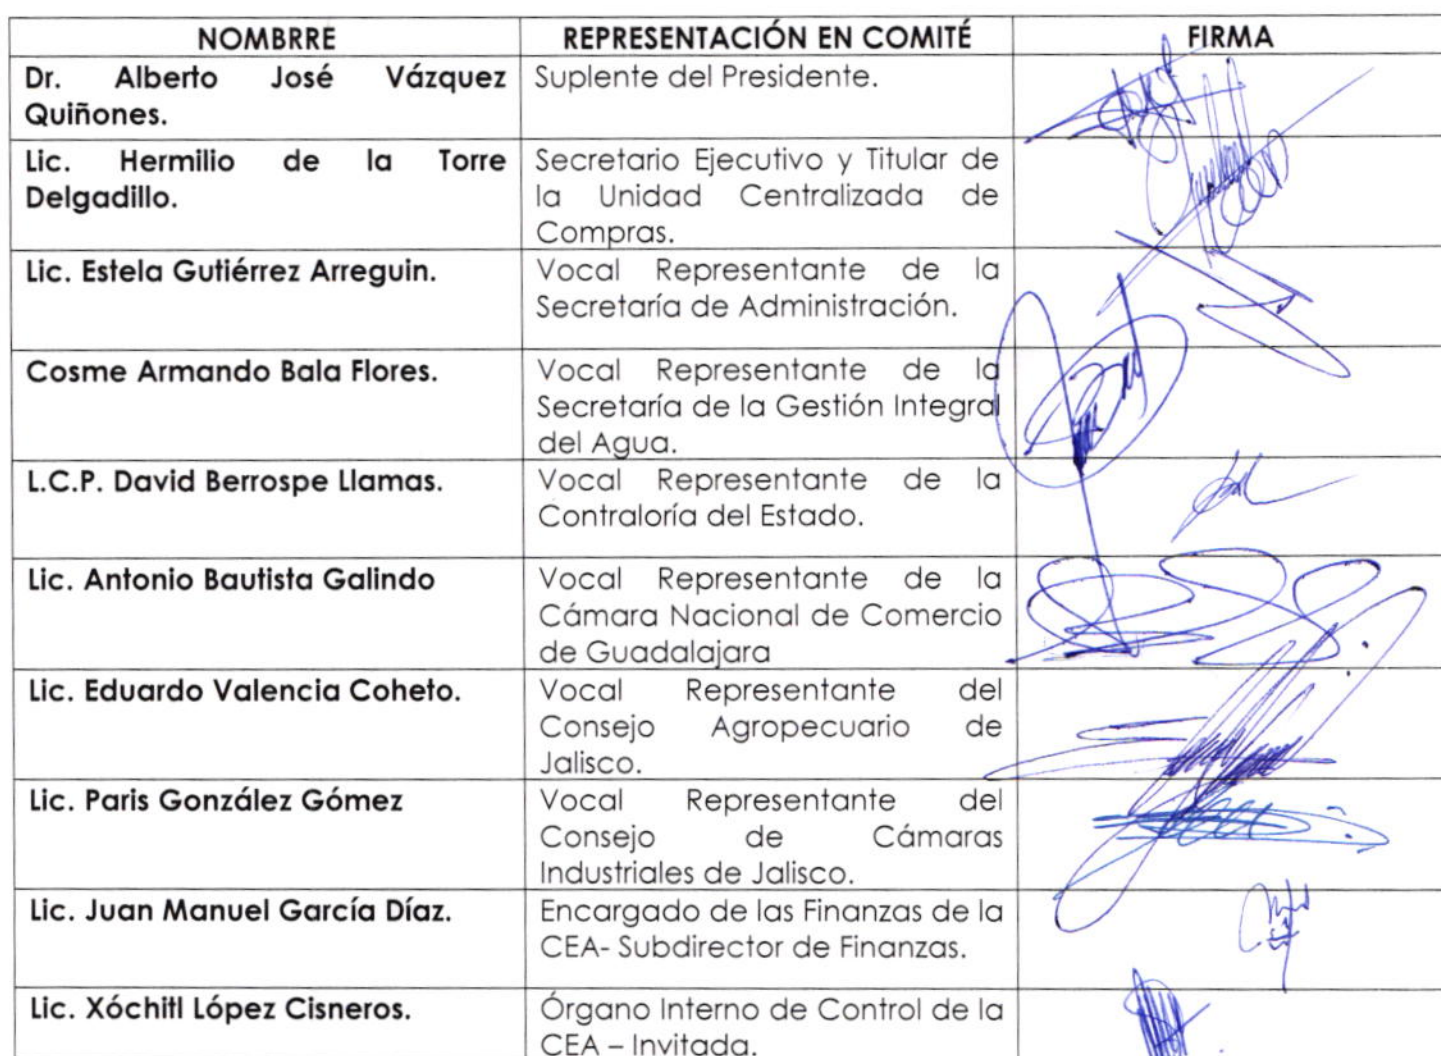 NOMBRRE REPRESENTACIÓN EN COMITÉ FIRMA
Dr. Alberto José Vázquez
Quiñones.
Suplente del Presidente.
Lic. Hermilio de la Torre
Delgadillo.
Secretario Ejecutivo y Titular de
la Unidad Centralizada de
Compras.
Lic. Estela Gutiérrez Arreguin.
Vocal Representante de la
Secretaría de Administración.
Cosme Armando Bala Flores.
Vocal Representante de la
Secretaría de la Gestión Integral
del Agua.
L.C.P. David Berrospe Llamas.
Vocal Representante de la
Contraloría del Estado.
Lic. Antonio Bautista Galindo
Vocal Representante de la
Cámara Nacional de Comercio
de Guadalajara
Lic. Eduardo Valencia Coheto.
Vocal Representante del
Consejo Agropecuario de
Jalisco.
Lic. Paris González Gómez
Vocal Representante del
Consejo de Cámaras
Industriales de Jalisco.
Lic. Juan Manuel García Díaz.
Encargado de las Finanzas de la
CEA- Subdirector de Finanzas.
Lic. Xóchitl López Cisneros.
Órgano Interno de Control de la
CEA – Invitada.